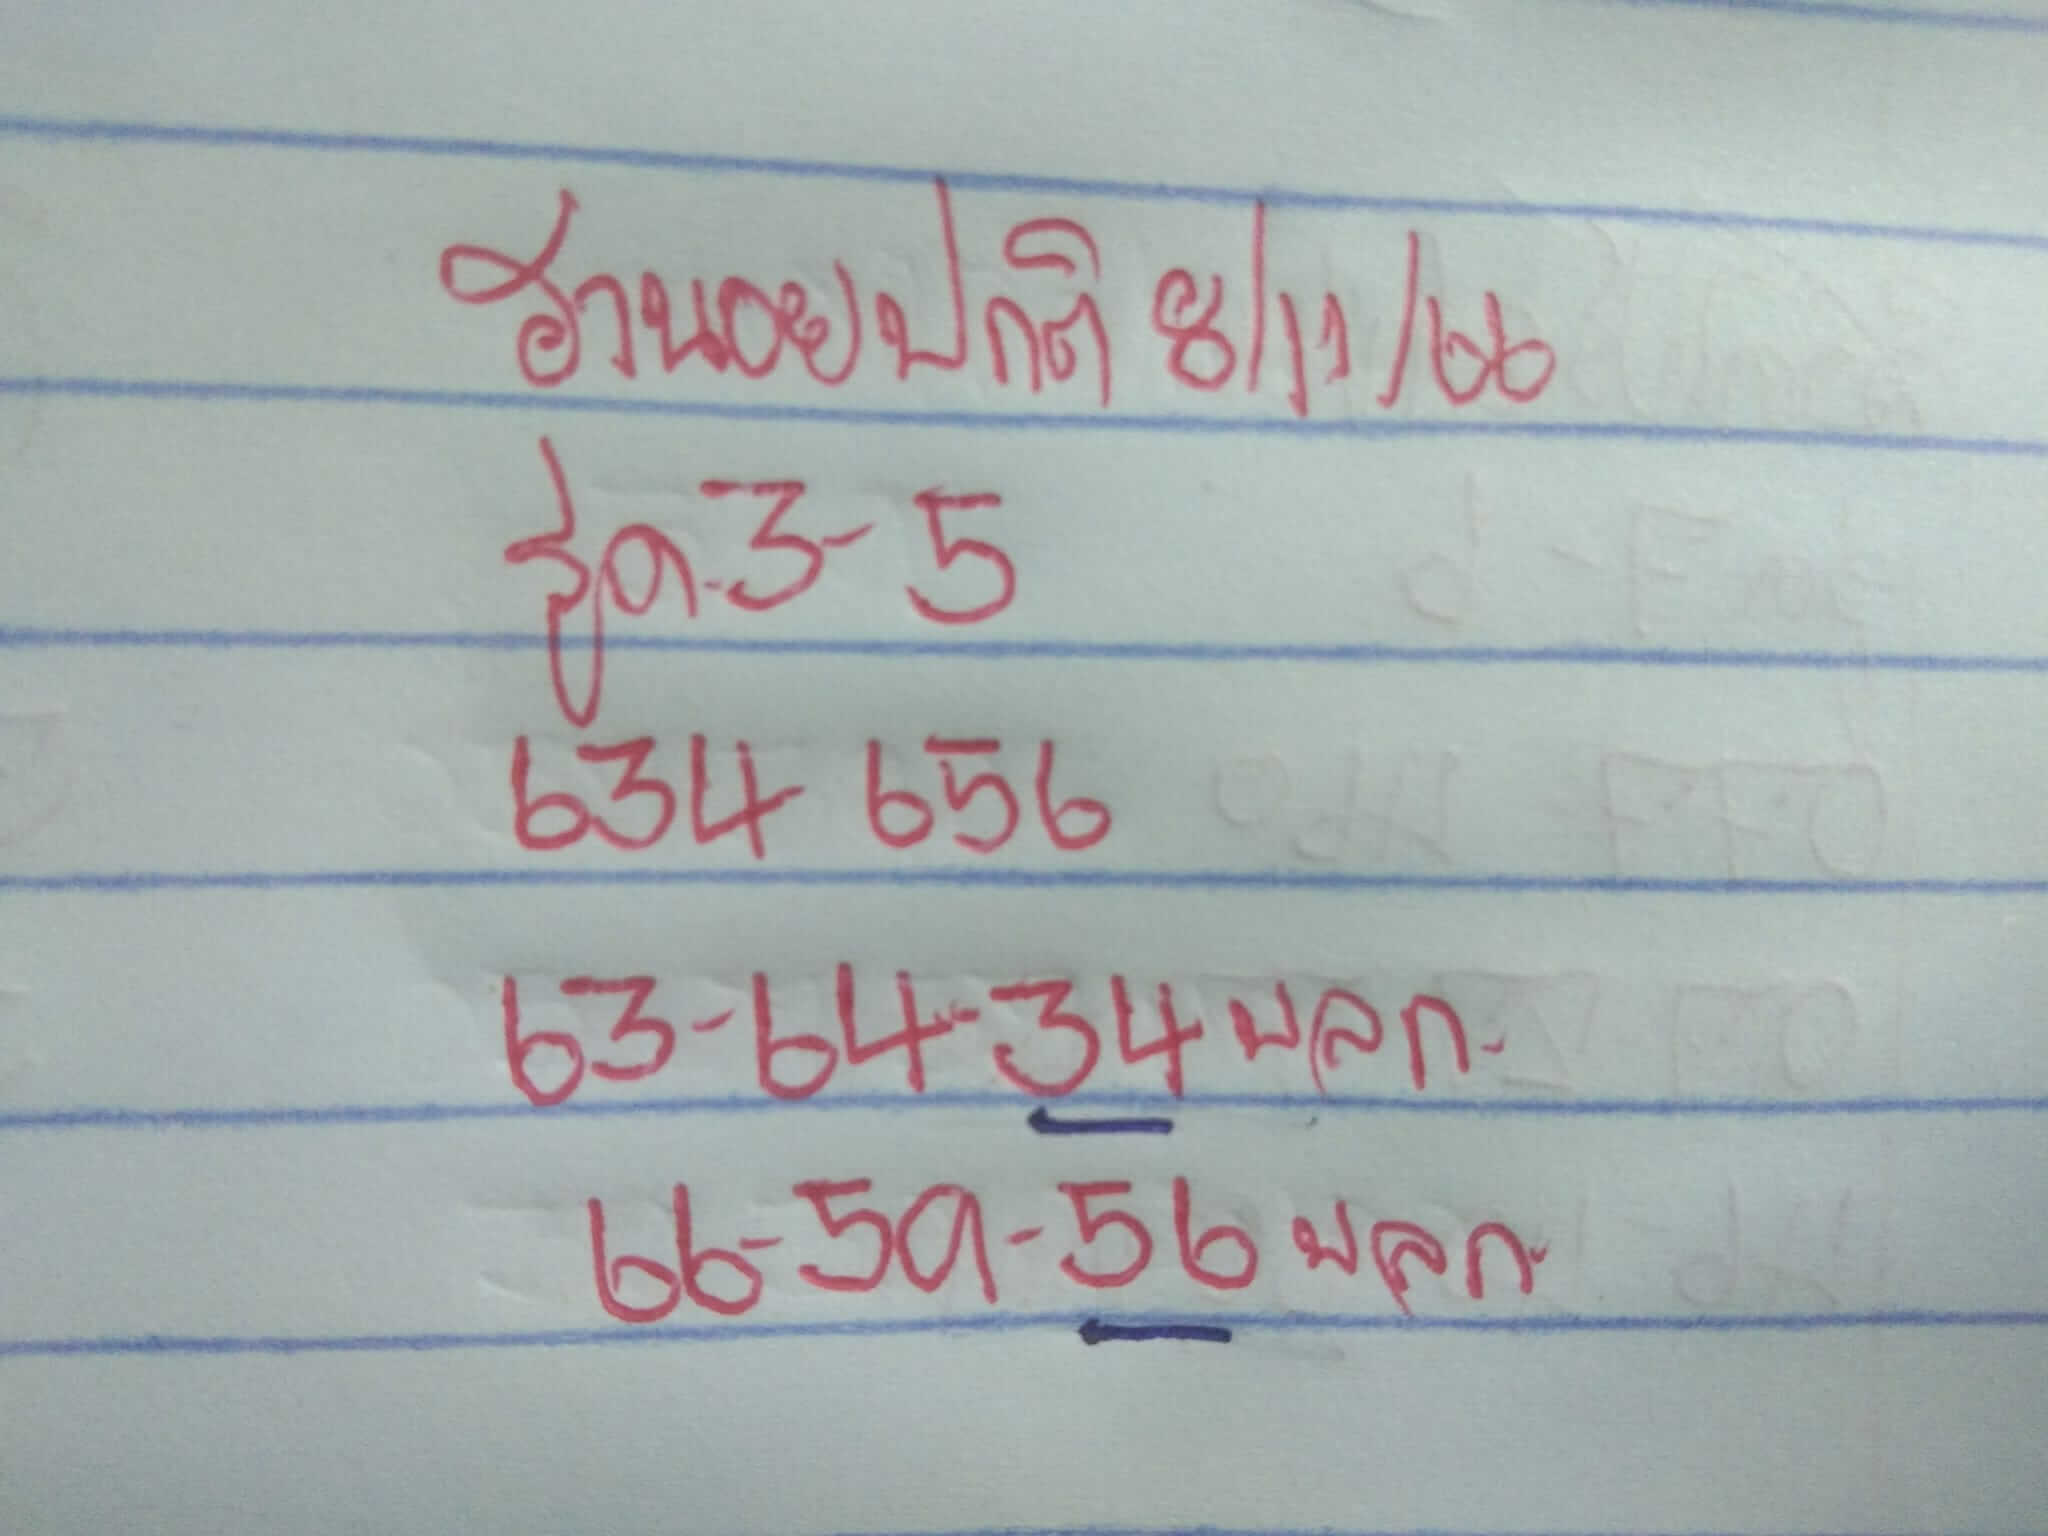 ฮานอยปกติ 8/11/66
รูด.3-5
634 656
63-64-34 ปลก.
66-59-56 ปลก.